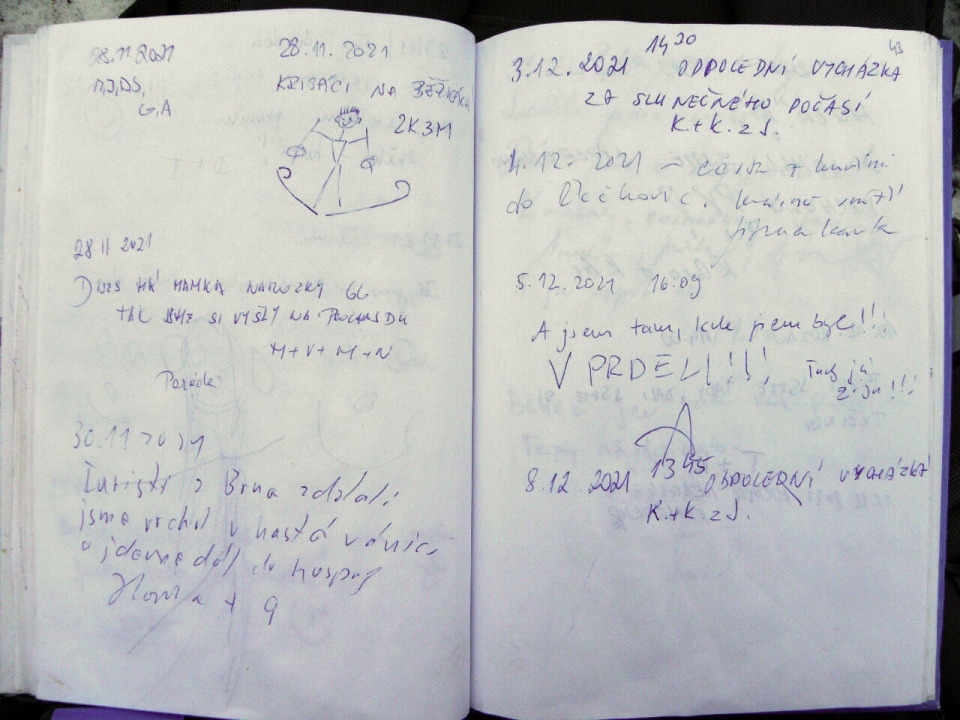 28.11.2021
D,J,DS,
G,A
28.11. 2021
KRISÁCI NA BĚŽKÁCH
2K3M
28 11 2021
DNES MÁ MAMKA NAROZKY 66
TAK SI VYŠLY NA
M+V+M+N
Paráda
30.11
Turisté z Brna zdolali
jsme vrchol v hustá vánic
a jdeme dál do hospody
+ 9
43
14 30
3.12. 2021 ODPOLEDNÍ VYCHÁZKA
ZA SLUNEČNÉHO POČASÍ
K+K. z J.
4.12. 2021 – cesta z
do Řečkovic.
5.12. 2021 16:09
A jsem tam, kde jsem byl!!!
V PRDELI!!!
Tady já
žiju!!!
8.12. 2021 13 45 ODPOLEDNÍ VYCHÁZKA
K.+K. z J.